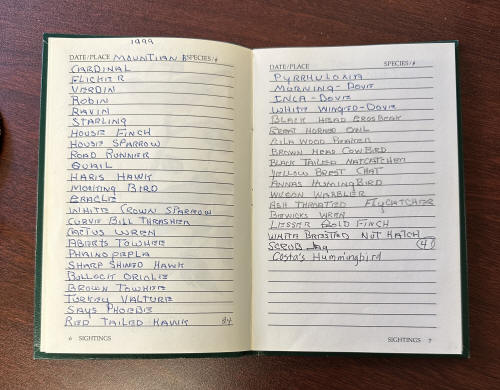 1999
DATE/PLACE MOUNTIAN SPECIES/#
CARDINAL
FLICKER
VERDIN
ROBIN
RAVIN
STARLING
HOUSE FINCH
HOUSE SPARROW
ROAD RUNNER
QUAIL
HARIS HAWK
MORKING BIRD
GRACLIE
WHITE CROWN SPARROW
CURVE BILL THRASHER
CACTUS WREN
ABERTS TOWHEE
PHAINOPEPLA
SHARP SHINED HAWK
BULLOCK ORIALIE
BROWN TOWHEE
TURKEY VALTURE
SAYS PHOEBIE
RED TAILED HAWK
6 SIGHTINGS
DATE/PLACE SPECIES/#
PYRRHULOXIA
MORNING-DOVIE
INCA-DOVIE
WHITE WINGED-DOVIE
BLACK HEAD GROSBEAK
GREAT HORNED OWL
GILA WOOD PECKER
BROWN HEAD COWBIRD
BLACK TAILED NATCATCHER
YELLOW BREST CHAT
ANNAS HUMINGBIRD
WILSON WARBLER
ASH THROATED FLYCATCHER
BEWICKS WREN
LESSER GOLD FINCH
WHITE BRESTED NUT HATCH
SCRUB Jay (41)
Costa's Hummingbird
SIGHTINGS 7